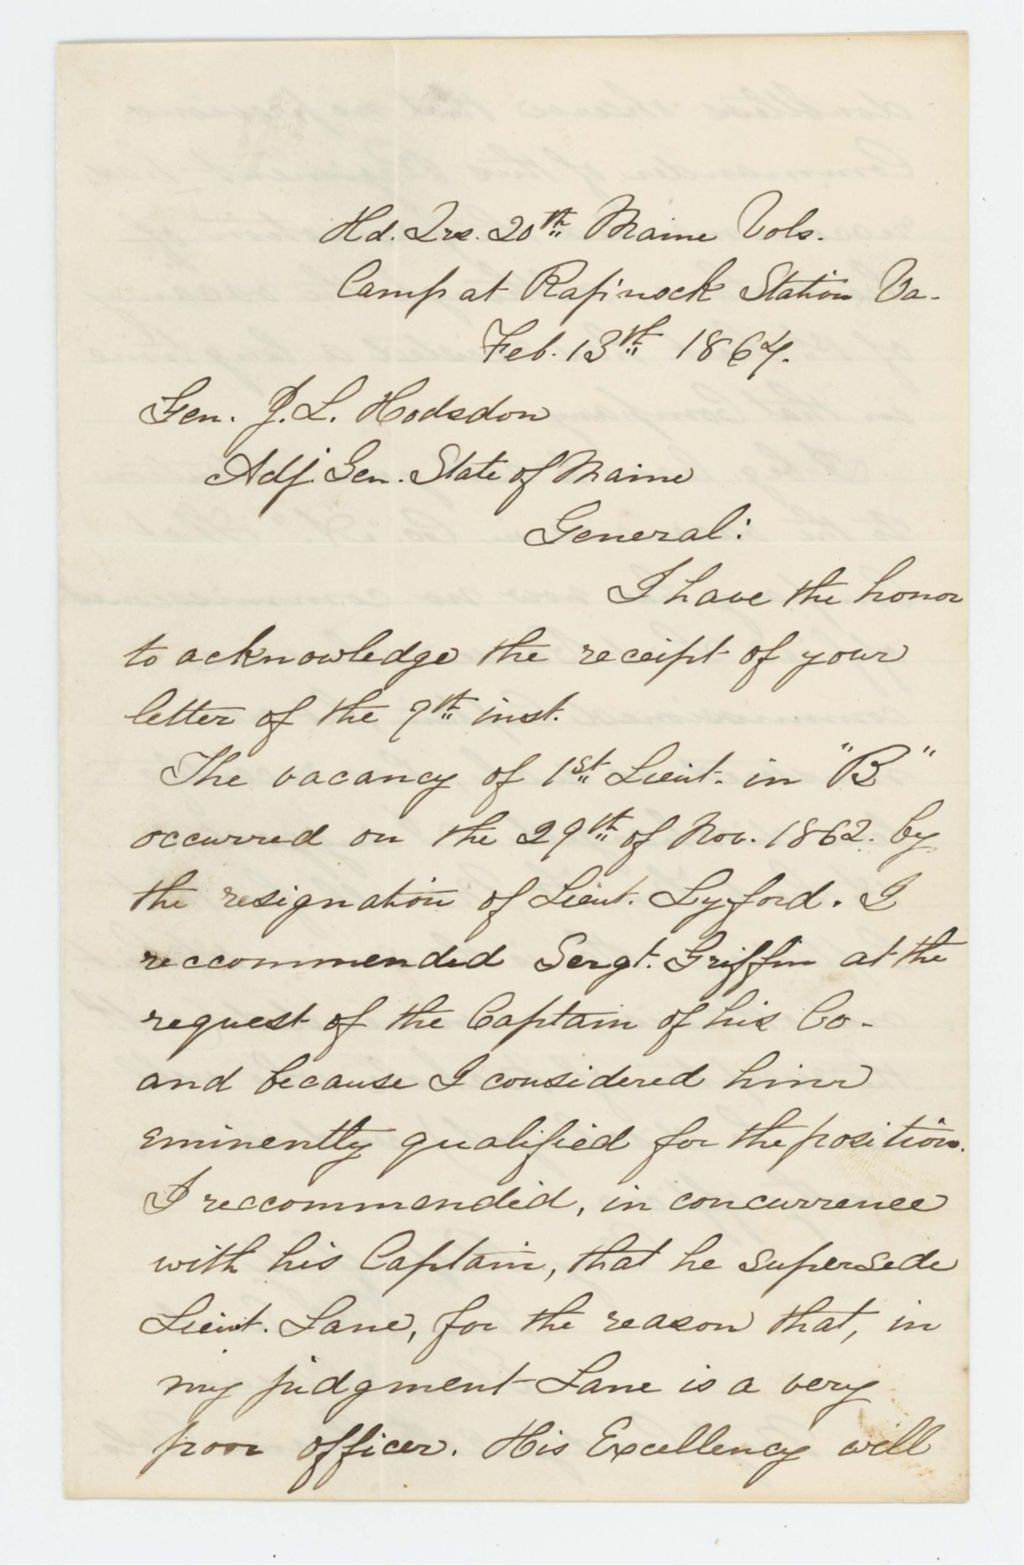 Hd. Qrs. 20th Maine Vols.
Camp at Rapinock Station Va.
Feb. 13th 1864.
Gen. J. L. Hodsdon
Adj. Gen. State of Maine
General:
I have the honor
to acknowledge the receipt of your
letter of the 9th inst.
The vacancy of 1st Lieut. in "B"
occurred on the 29th of Nov. 1862. by
the resignation of Lieut. Lyford. I
reccommended Sergt. Griffin at the
request of the Captain of his Co-
and because I considered him
eminently qualified for the position.
I reccommended, in concurrence
with his Captain, that he supersede
Lieut. Lane, for the reason that, in
my judgment Lane is a very
poor officer. His Excellency will